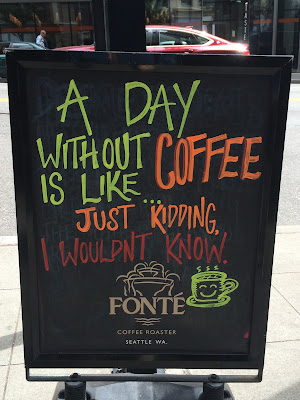 A DAY
WITHOUT COFFEE
IS LIKE...
JUST KIDDING,
I WOULDNT KNOW.
FONTÉ
COFFEE ROASTER
SEATTLE WA.